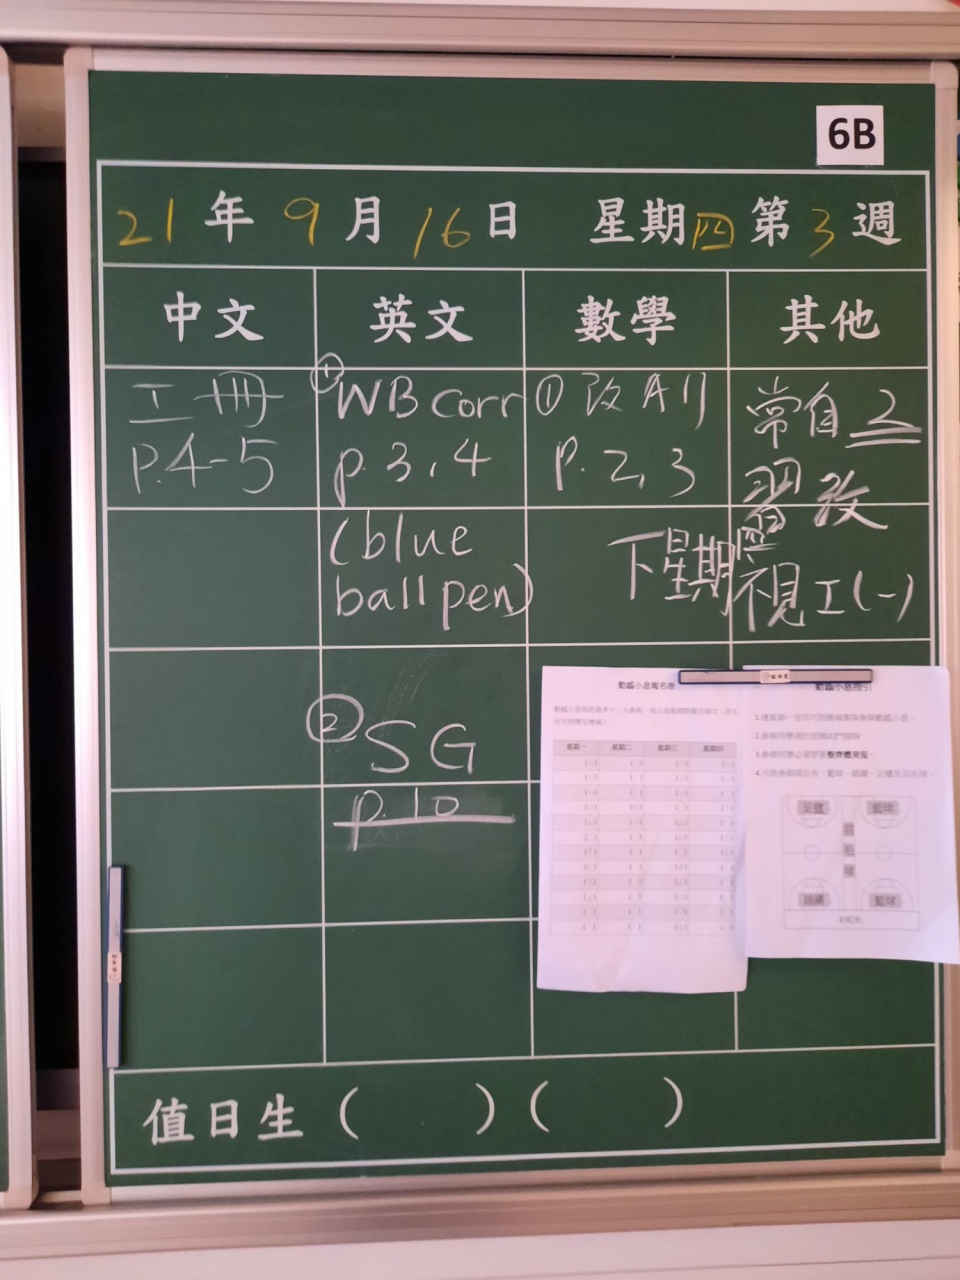 6B
21年9月16日 星期四第3週
中文 英文 數學 其他
工冊
p.4-5
① WB corr
p.3,4
(blue
ball pen)
② SG
p.10
① 改A刂
p.2,3
常自2
習改
下星期四
視工(一)
動感小息報名表
星期一 星期二 星期三 星期四
動感小息指引
足毽 籃球
羽
毛
球
跳繩 籃球
值日生 ( ) ( )